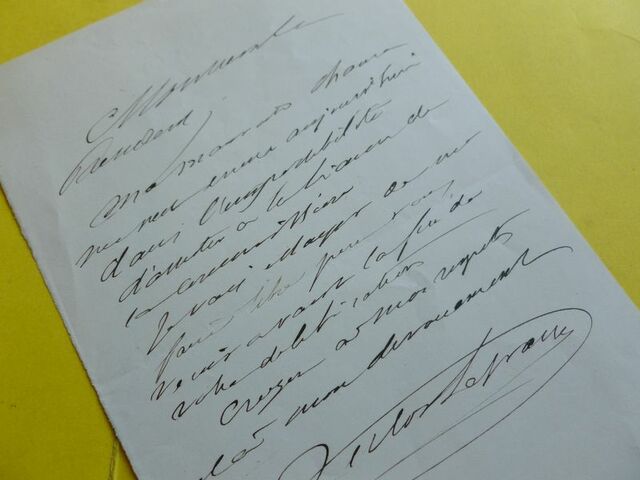 Monsieur le
Président,
Ma mauvaise chance
me met encore aujourd'hui
dans l'impossibilité
d'assister à la réunion de
la commission
Je vais essayer de me
faire libre pour vous
revenir avant la fin de
votre délibération
Croyez à mes regrets
et à mon dévouement
Victor